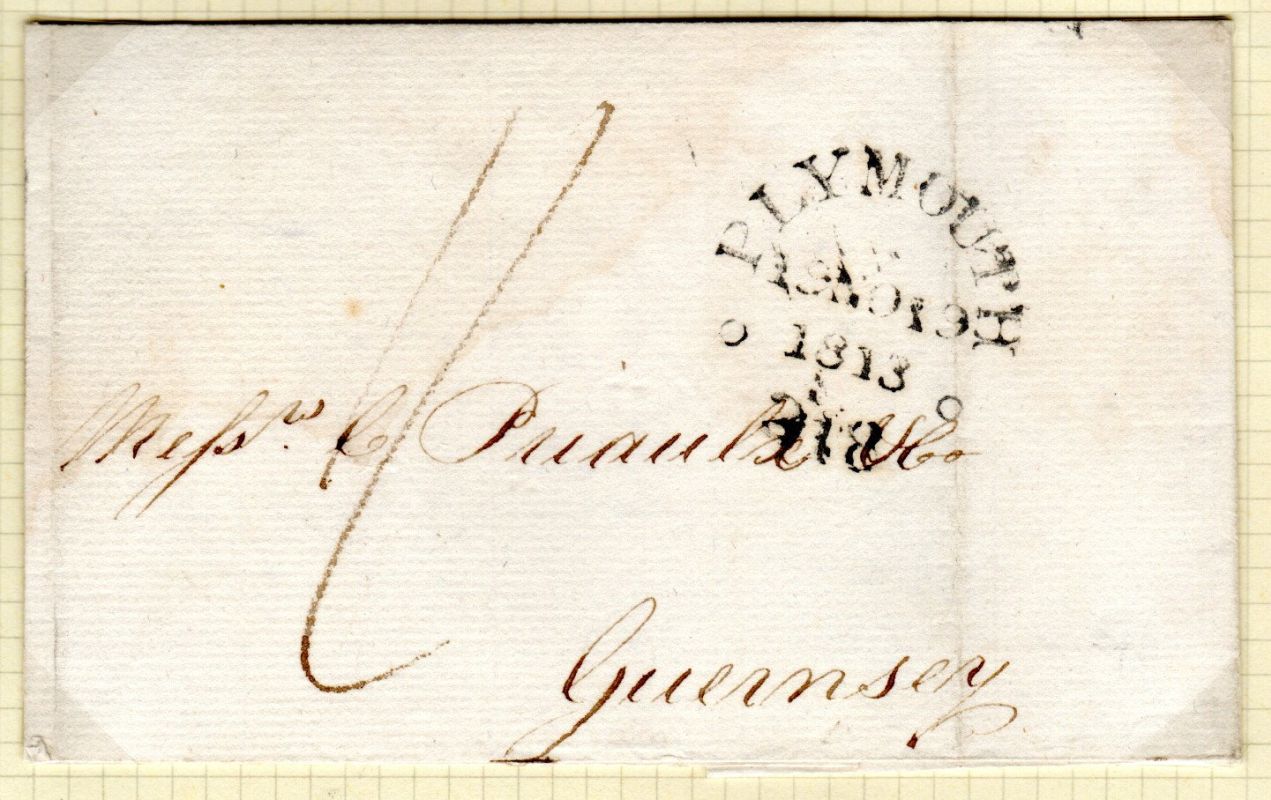 PLYMOUTH
19 NO 19
1813
218
Messrs. C Priaulx & Co
Guernsey
11